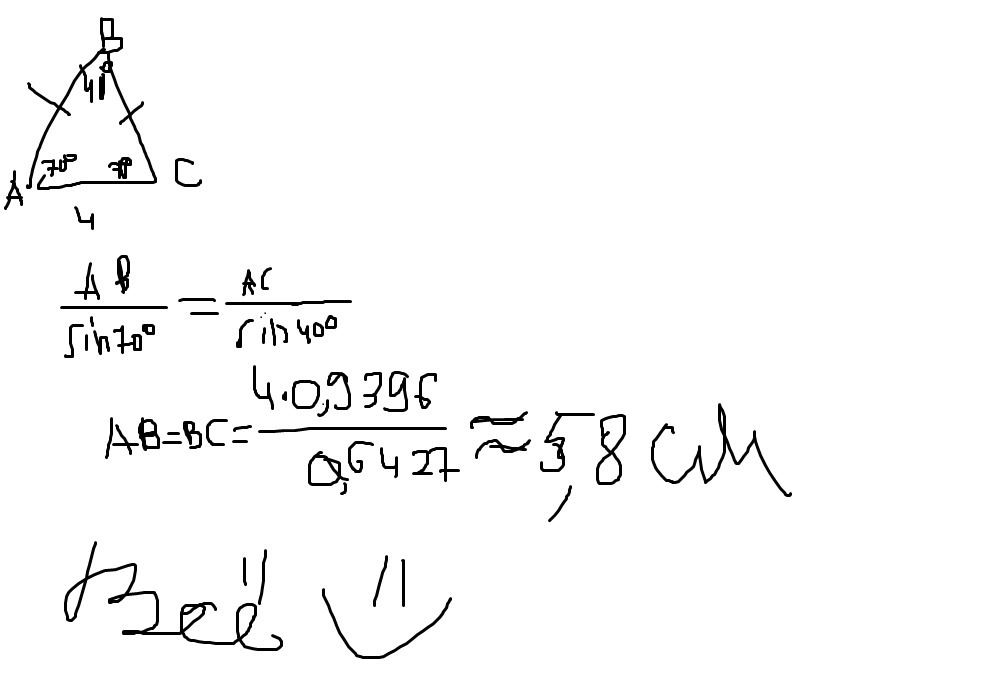 B
40°
70° 70°
A C
4
AB/sin70° = AC/sin40°
AB=BC= 4·0,9396/0,6427 ≈ 5,8 см
Всё